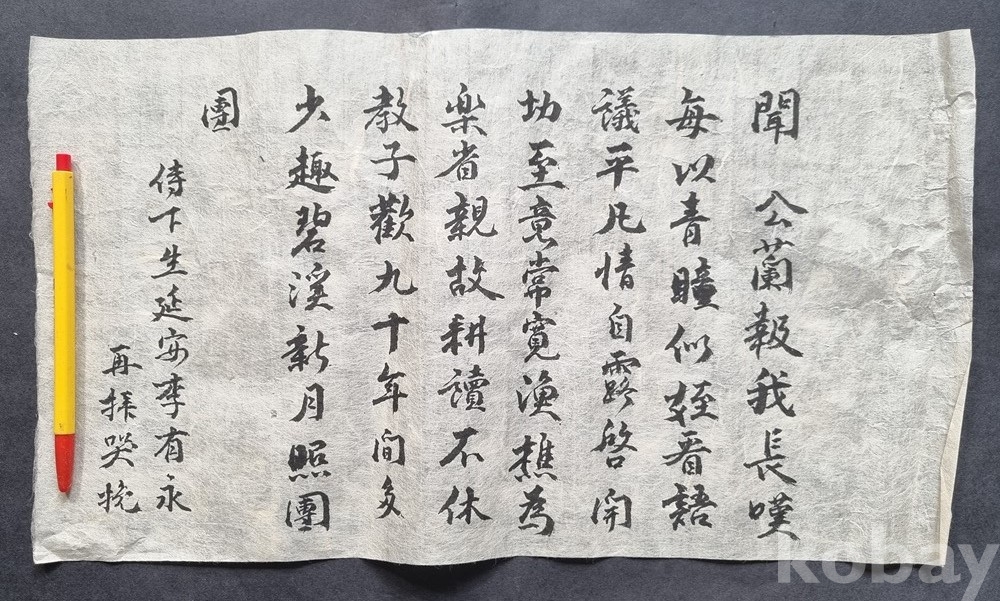 聞 公蘭報我長嘆
每以青瞳似姪看語
議平凡情自露啓開
功至意常寬漁樵為
樂省親故耕讀不休
教子歡九十年间多
少趣碧溪新月照團
團
侍下生延安李有永
再拜哭挽
kobay